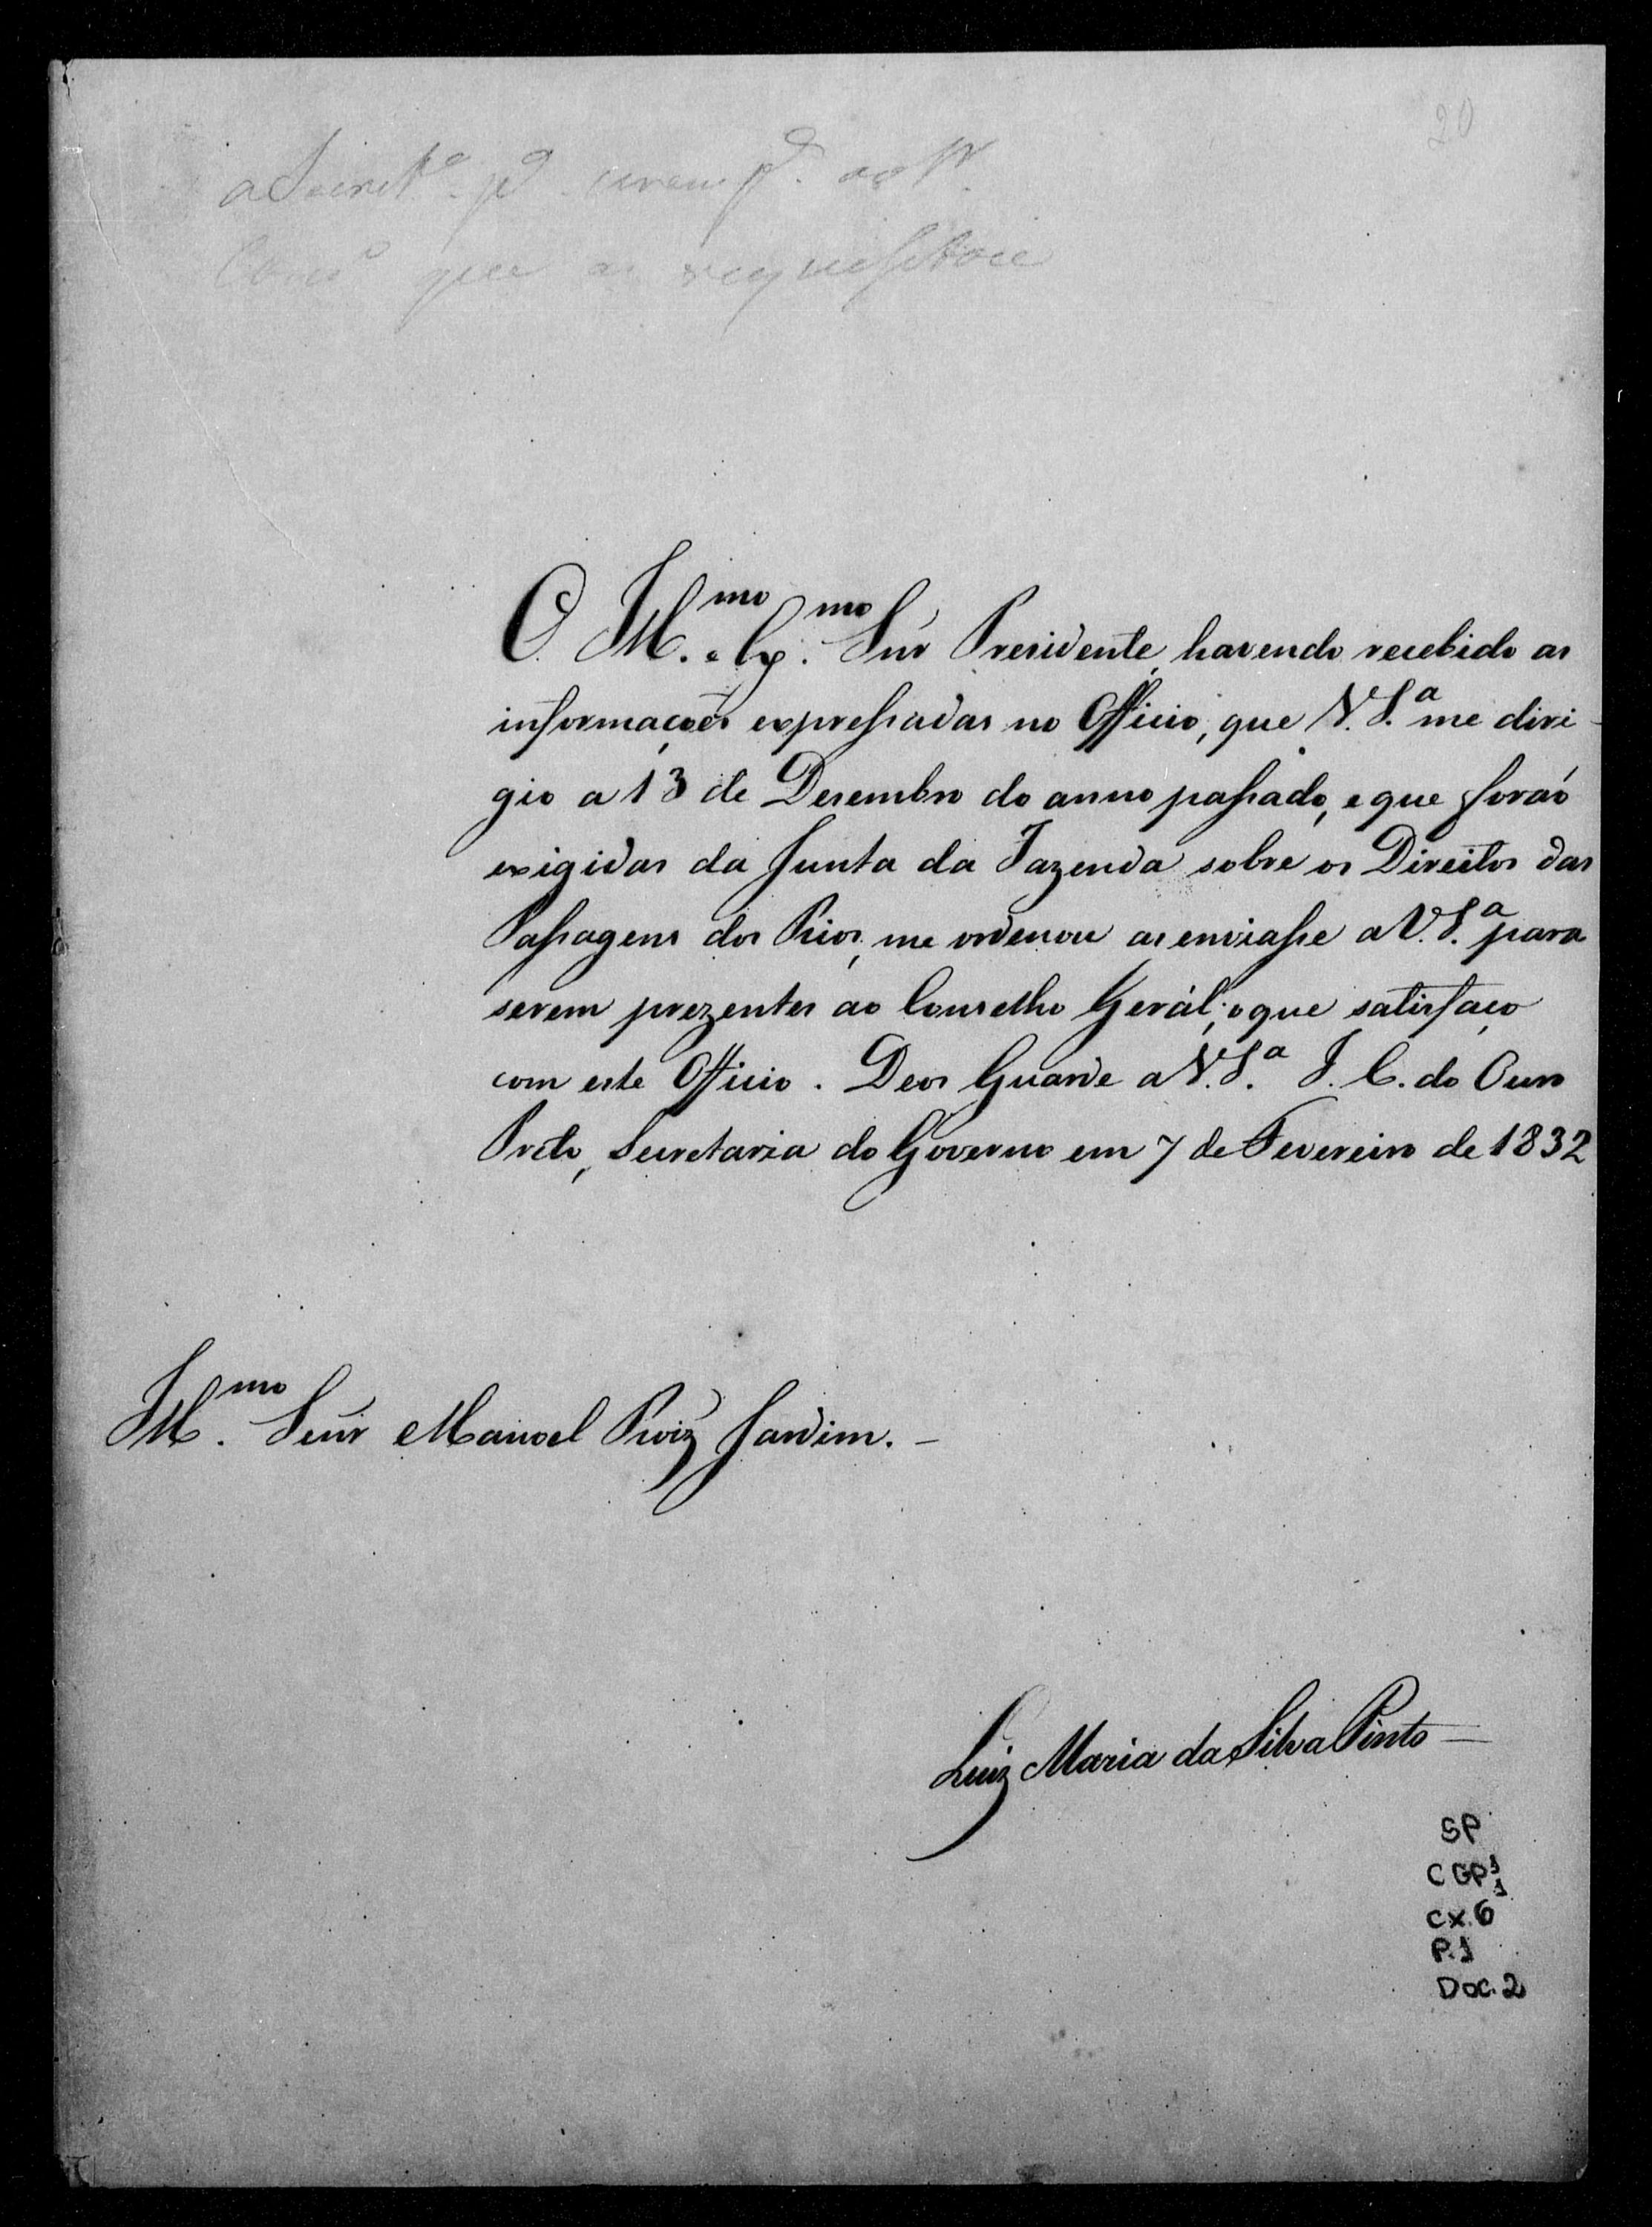 20
que as requisitou
O Ill.mo e Ex.mo Snr Presidente, havendo recebido as
informações expressadas no Officio, que V. S.a me diri-
gio a 13 de Desembro do anno passado, e que forão
exigidas da Junta da Fazenda sobre os Direitos das
Passagens dos Rios, me ordenou as enviasse a V. S.a para
serem prezentes ao Conselho Geral; o que satisfaço
com este Officio. Deos Guarde a V. S.a I. C. do Ouro
Preto, Secretaria do Governo em 7 de Fevereiro de 1832
Ill.mo Senr Manoel Roiz Jardim. -
Luiz Maria da Silva Pinto
SP
CGP1
1
cx.6
P.1
Doc.2